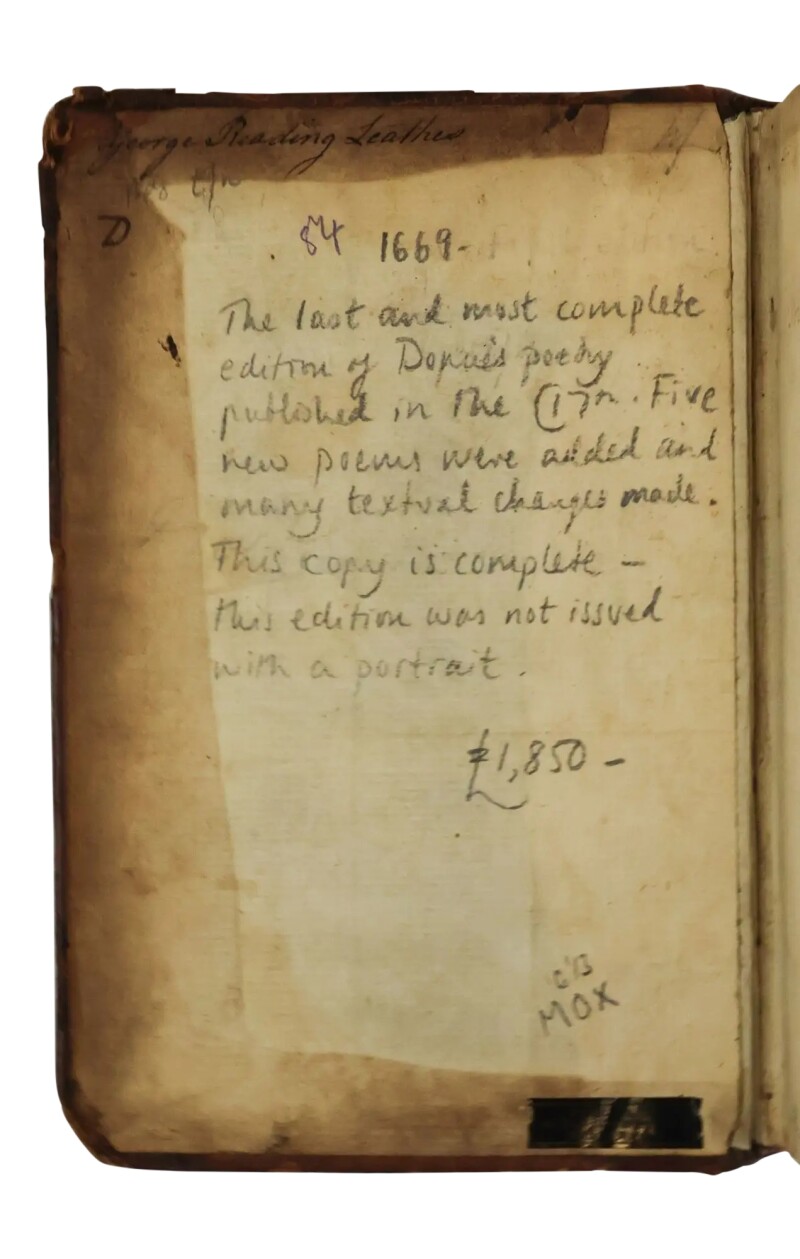 George Reading Leathes
D
84 1669-
The last and most complete
edition of Donne's poetry
published in the C17th. Five
new poems were added and
many textual changes made.
This copy is complete –
this edition was not issued
with a portrait.
£1,850 –
MOX